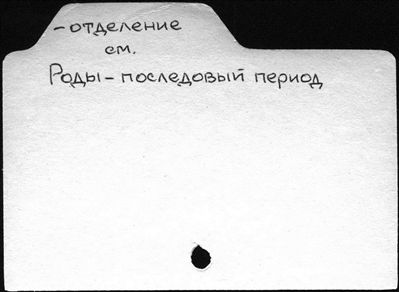 -отделение
см.
Роды-последовый период